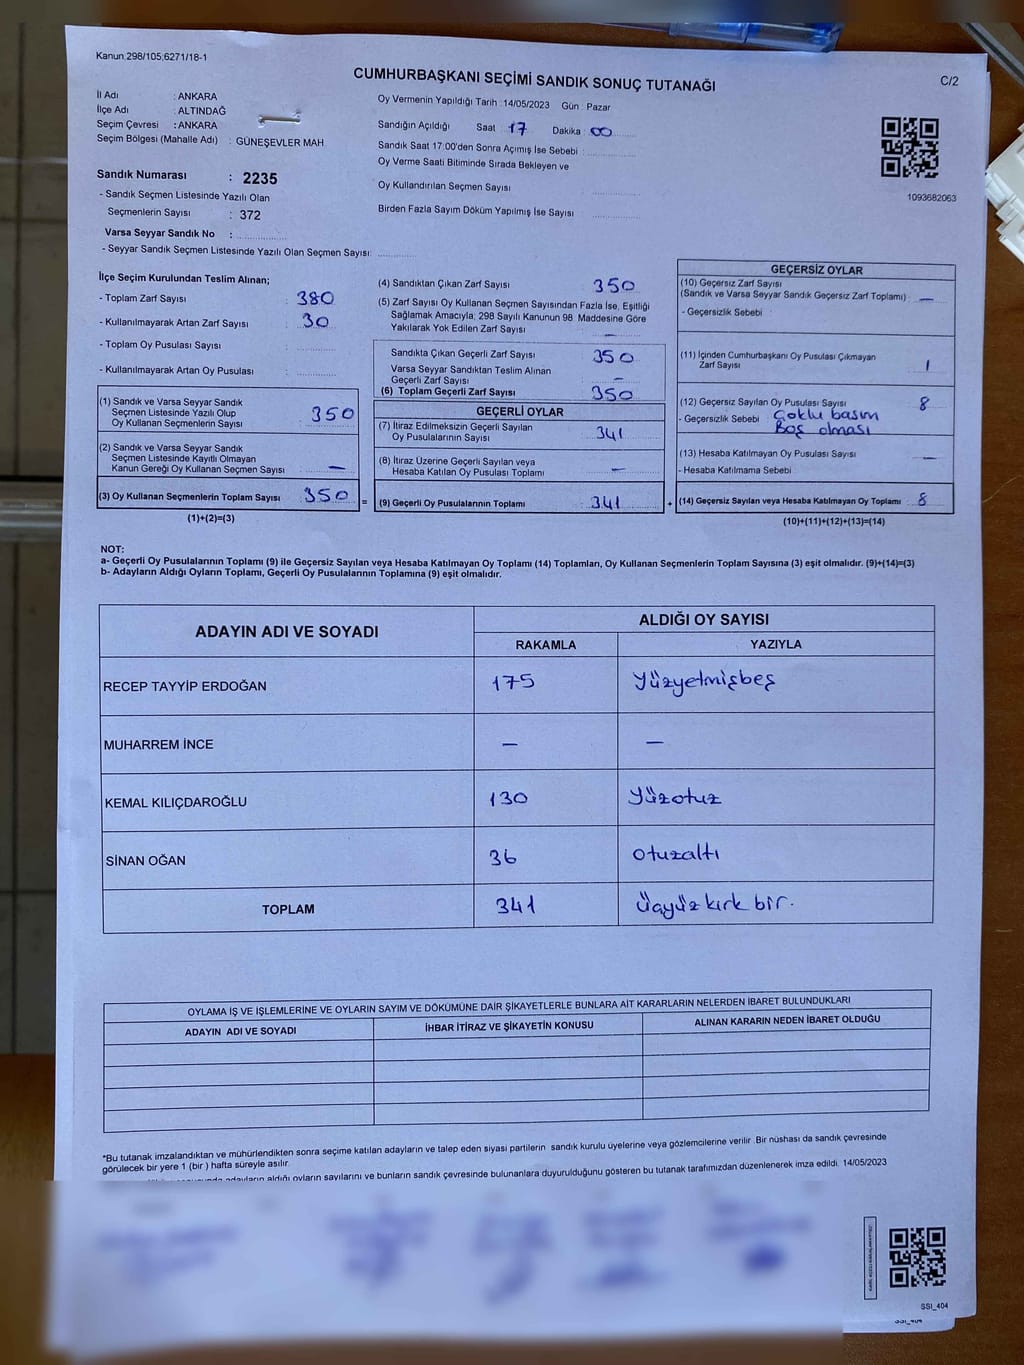 Kanun:298/105;6271/18-1
CUMHURBAŞKANI SEÇİMİ SANDIK SONUÇ TUTANAĞI
C/2
İl Adı : ANKARA
İlçe Adı : ALTINDAĞ
Seçim Çevresi : ANKARA
Seçim Bölgesi (Mahalle Adı) : GÜNEŞEVLER MAH
Sandık Numarası : 2235
- Sandık Seçmen Listesinde Yazılı Olan
Seçmenlerin Sayısı : 372
Varsa Seyyar Sandık No :
- Seyyar Sandık Seçmen Listesinde Yazılı Olan Seçmen Sayısı:
Oy Vermenin Yapıldığı Tarih :14/05/2023 Gün : Pazar
Sandığın Açıldığı Saat : 17 Dakika : 00
Sandık Saat 17:00'den Sonra Açımış İse Sebebi :
Oy Verme Saati Bitiminde Sırada Bekleyen ve
Oy Kullandırılan Seçmen Sayısı
Birden Fazla Sayım Döküm Yapılmış İse Sayısı
1093682063
İlçe Seçim Kurulundan Teslim Alınan;
- Toplam Zarf Sayısı : 380
- Kullanılmayarak Artan Zarf Sayısı : 30
- Toplam Oy Pusulası Sayısı :
- Kullanılmayarak Artan Oy Pusulası :
(1) Sandık ve Varsa Seyyar Sandık
Seçmen Listesinde Yazılı Olup
Oy Kullanan Seçmenlerin Sayısı : 350
(2) Sandık ve Varsa Seyyar Sandık
Seçmen Listesinde Kayıtlı Olmayan
Kanun Gereği Oy Kullanan Seçmen Sayısı : —
(3) Oy Kullanan Seçmenlerin Toplam Sayısı : 350 =
(1)+(2)=(3)
(4) Sandıktan Çıkan Zarf Sayısı 350
(5) Zarf Sayısı Oy Kullanan Seçmen Sayısından Fazla İse, Eşitliği
Sağlamak Amacıyla; 298 Sayılı Kanunun 98. Maddesine Göre
Yakılarak Yok Edilen Zarf Sayısı —
Sandıkta Çıkan Geçerli Zarf Sayısı 350
Varsa Seyyar Sandıktan Teslim Alınan
Geçerli Zarf Sayısı —
(6) Toplam Geçerli Zarf Sayısı 350
GEÇERLİ OYLAR
(7) İtiraz Edilmeksizin Geçerli Sayılan
Oy Pusulalarının Sayısı 341
(8) İtiraz Üzerine Geçerli Sayılan veya
Hesaba Katılan Oy Pusulası Toplamı —
(9) Geçerli Oy Pusulalarının Toplamı 341 +
GEÇERSİZ OYLAR
(10) Geçersiz Zarf Sayısı
(Sandık ve Varsa Seyyar Sandık Geçersiz Zarf Toplamı) : —
- Geçersizlik Sebebi :
(11) İçinden Cumhurbaşkanı Oy Pusulası Çıkmayan
Zarf Sayısı 1
(12) Geçersiz Sayılan Oy Pusulası Sayısı 8
- Geçersizlik Sebebi : Çoklu basım
Boş olması
(13) Hesaba Katılmayan Oy Pusulası Sayısı —
- Hesaba Katılmama Sebebi
(14) Geçersiz Sayılan veya Hesaba Katılmayan Oy Toplamı : 8
(10)+(11)+(12)+(13)=(14)
NOT:
a- Geçerli Oy Pusulalarının Toplamı (9) ile Geçersiz Sayılan veya Hesaba Katılmayan Oy Toplamı (14) Toplamları, Oy Kullanan Seçmenlerin Toplam Sayısına (3) eşit olmalıdır. (9)+(14)=(3)
b- Adayların Aldığı Oyların Toplamı, Geçerli Oy Pusulalarının Toplamına (9) eşit olmalıdır.
ADAYIN ADI VE SOYADI ALDIĞI OY SAYISI
RAKAMLA YAZIYLA
RECEP TAYYİP ERDOĞAN 175 Yüzyetmişbeş
MUHARREM İNCE — —
KEMAL KILIÇDAROĞLU 130 Yüzotuz
SİNAN OĞAN 36 otuzaltı
TOPLAM 341 Üçyüz kırk bir.
OYLAMA İŞ VE İŞLEMLERİNE VE OYLARIN SAYIM VE DÖKÜMÜNE DAİR ŞİKAYETLERLE BUNLARA AİT KARARLARIN NELERDEN İBARET BULUNDUKLARI
ADAYIN ADI VE SOYADI İHBAR İTİRAZ VE ŞİKAYETİN KONUSU ALINAN KARARIN NEDEN İBARET OLDUĞU
*Bu tutanak imzalandıktan ve mühürlendikten sonra seçime katılan adayların ve talep eden siyasi partilerin sandık kurulu üyelerine veya gözlemcilerine verilir. Bir nüshası da sandık çevresinde
görülecek bir yere 1 (bir) hafta süreyle asılır.
adayların aldığı oyların sayılarını ve bunların sandık çevresinde bulunanlara duyurulduğunu gösteren bu tutanak tarafımızdan düzenlenerek imza edildi. 14/05/2023
SSI_404
SSI_404